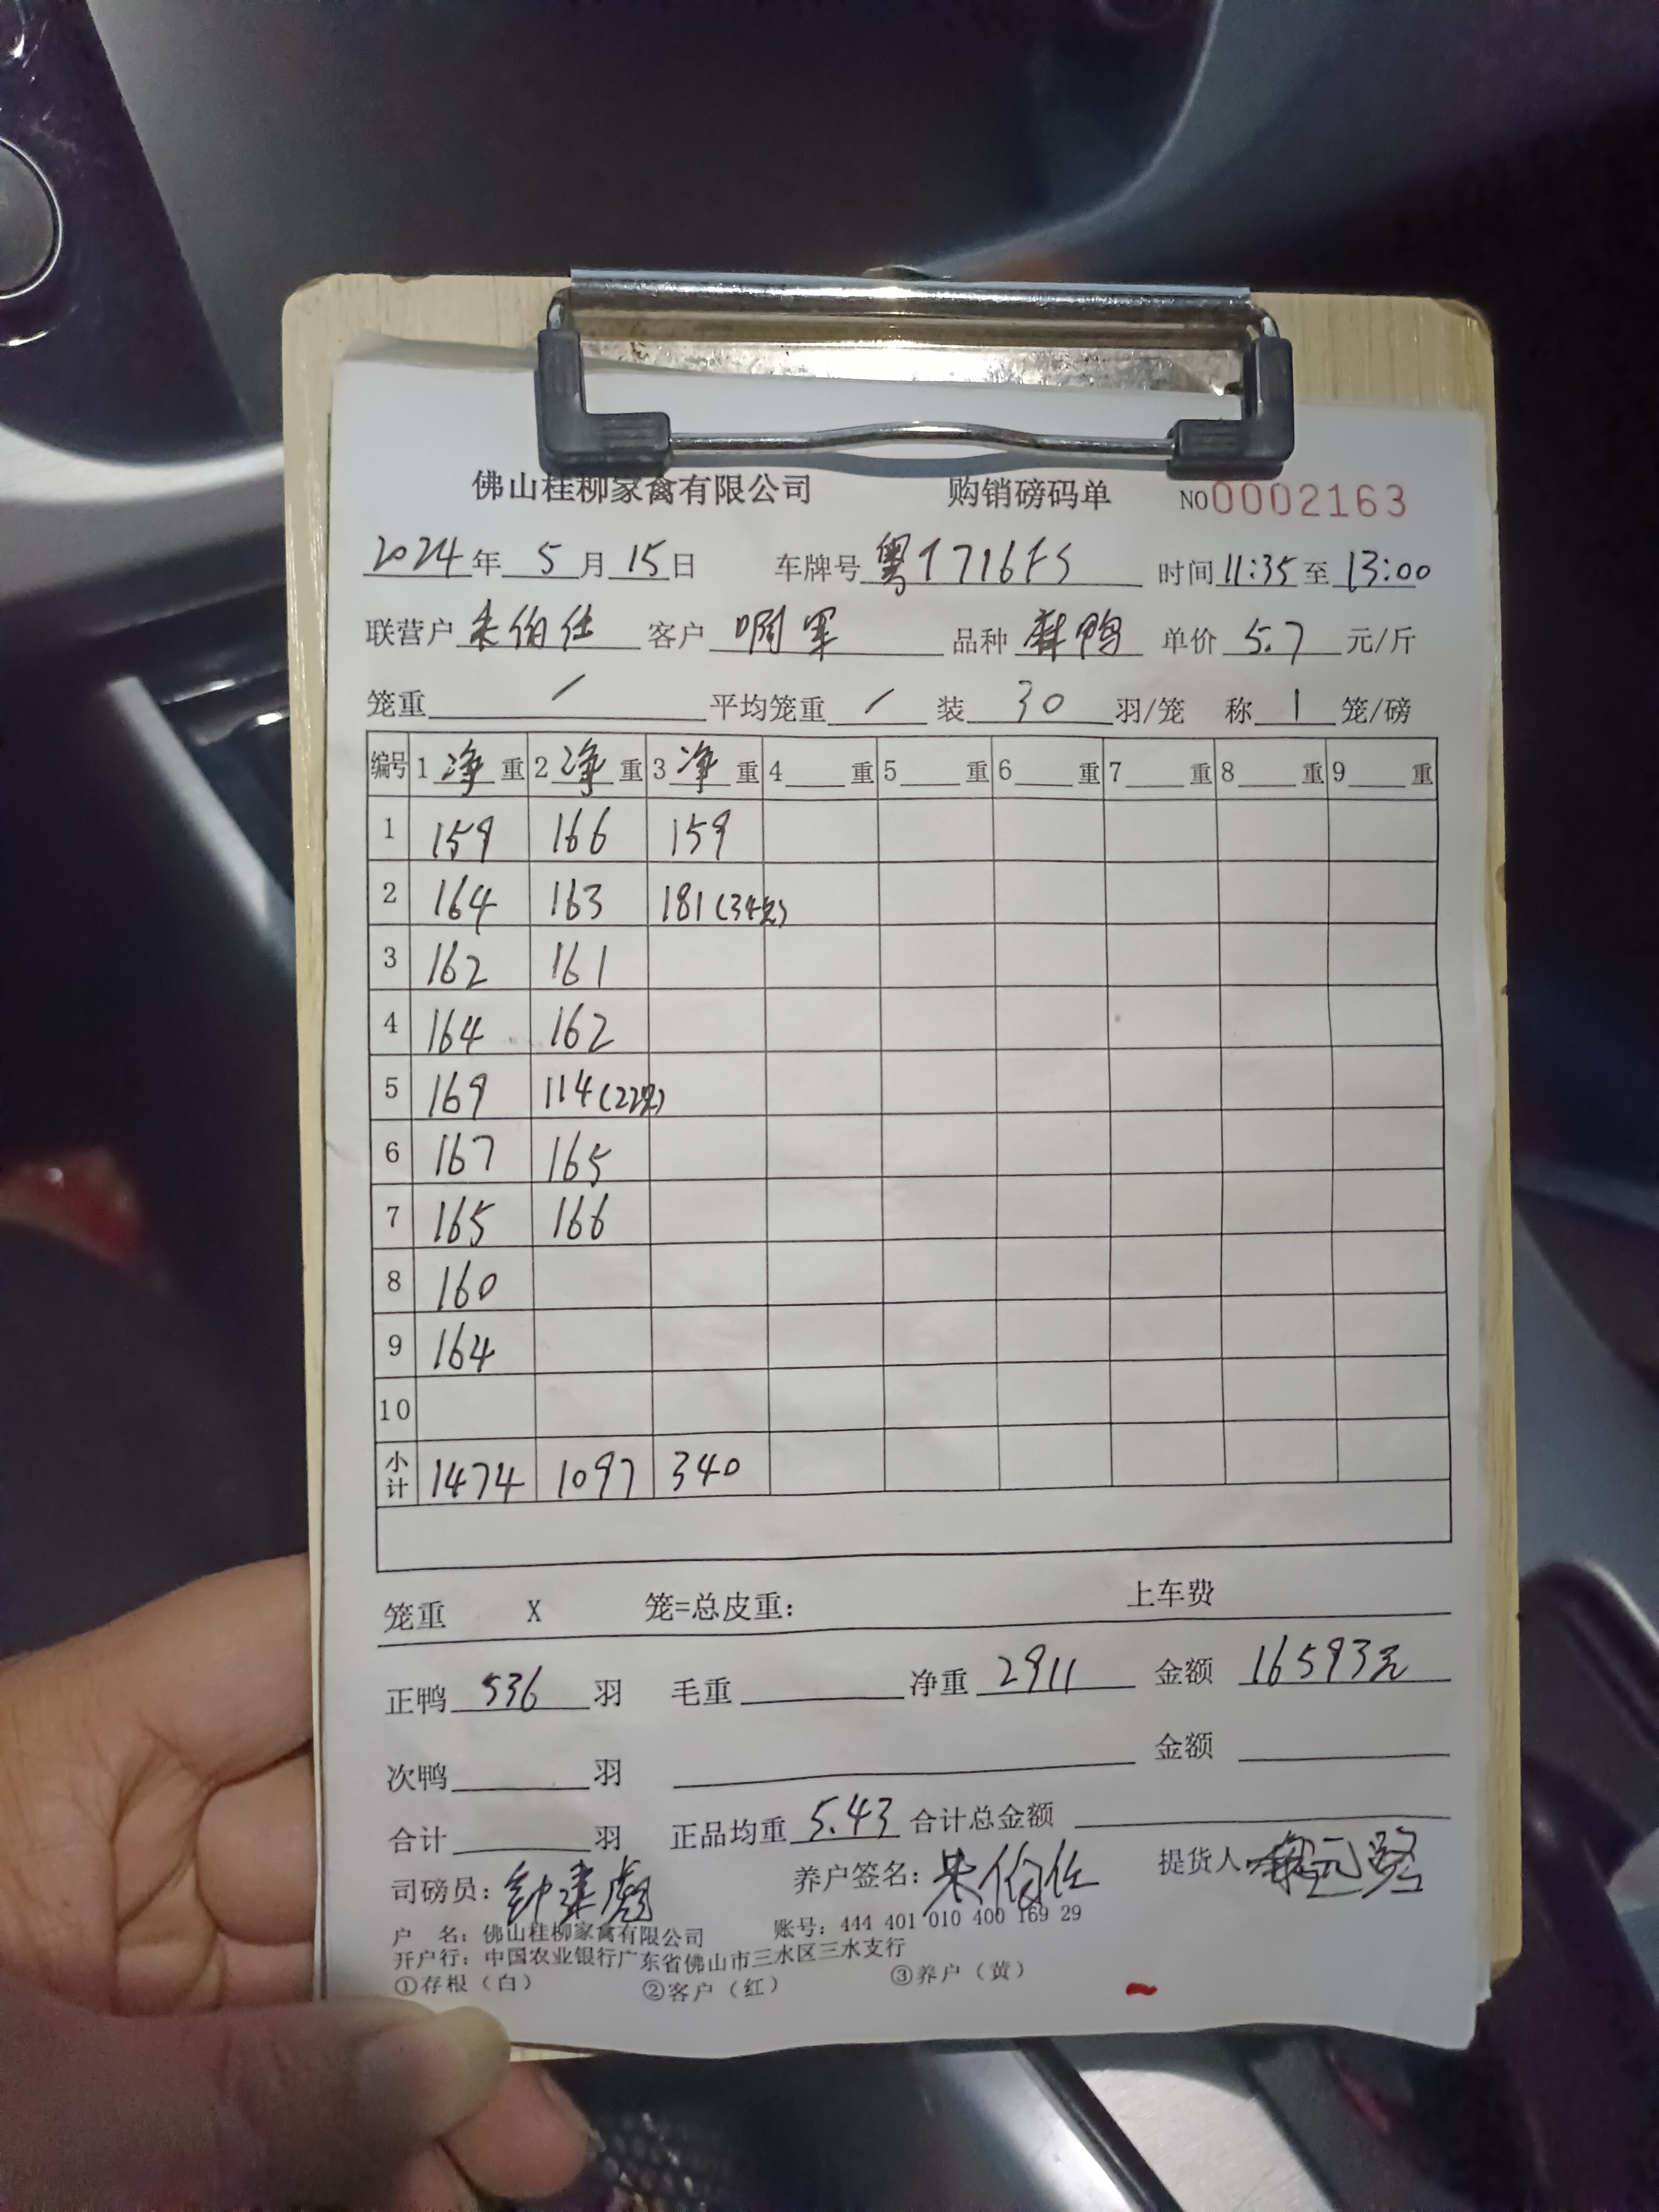 佛山桂柳家禽有限公司 购销磅码单 NO 0002163
2024年 5月15日 车牌号 粤T716FS 时间 11:35 至 13:00
联营户 朱伯仕 客户 军 品种 麻鸭 单价 5.7 元/斤
笼重 / 平均笼重 / 装 30 羽/笼 称 1 笼/磅
编号 1 净 重 2 净 重 3 净 重 4 重 5 重 6 重 7 重 8 重 9 重
1 159 166 159
2 164 163 181(34只)
3 162 161
4 164 162
5 169 114(22只)
6 167 165
7 165 166
8 160
9 164
10
小计 1474 1097 340
笼重 X 笼=总皮重: 上车费
正鸭 536 羽 毛重 净重 2911 金额 16593元
次鸭 羽 金额
合计 羽 正品均重 5.43 合计总金额
司磅员: 钟建彪 养户签名: 朱伯仕 提货人
户 名: 佛山桂柳家禽有限公司 账号: 444 401 010 400 169 29
开户行: 中国农业银行广东省佛山市三水区三水支行
①存根（白） ②客户（红） ③养户（黄）